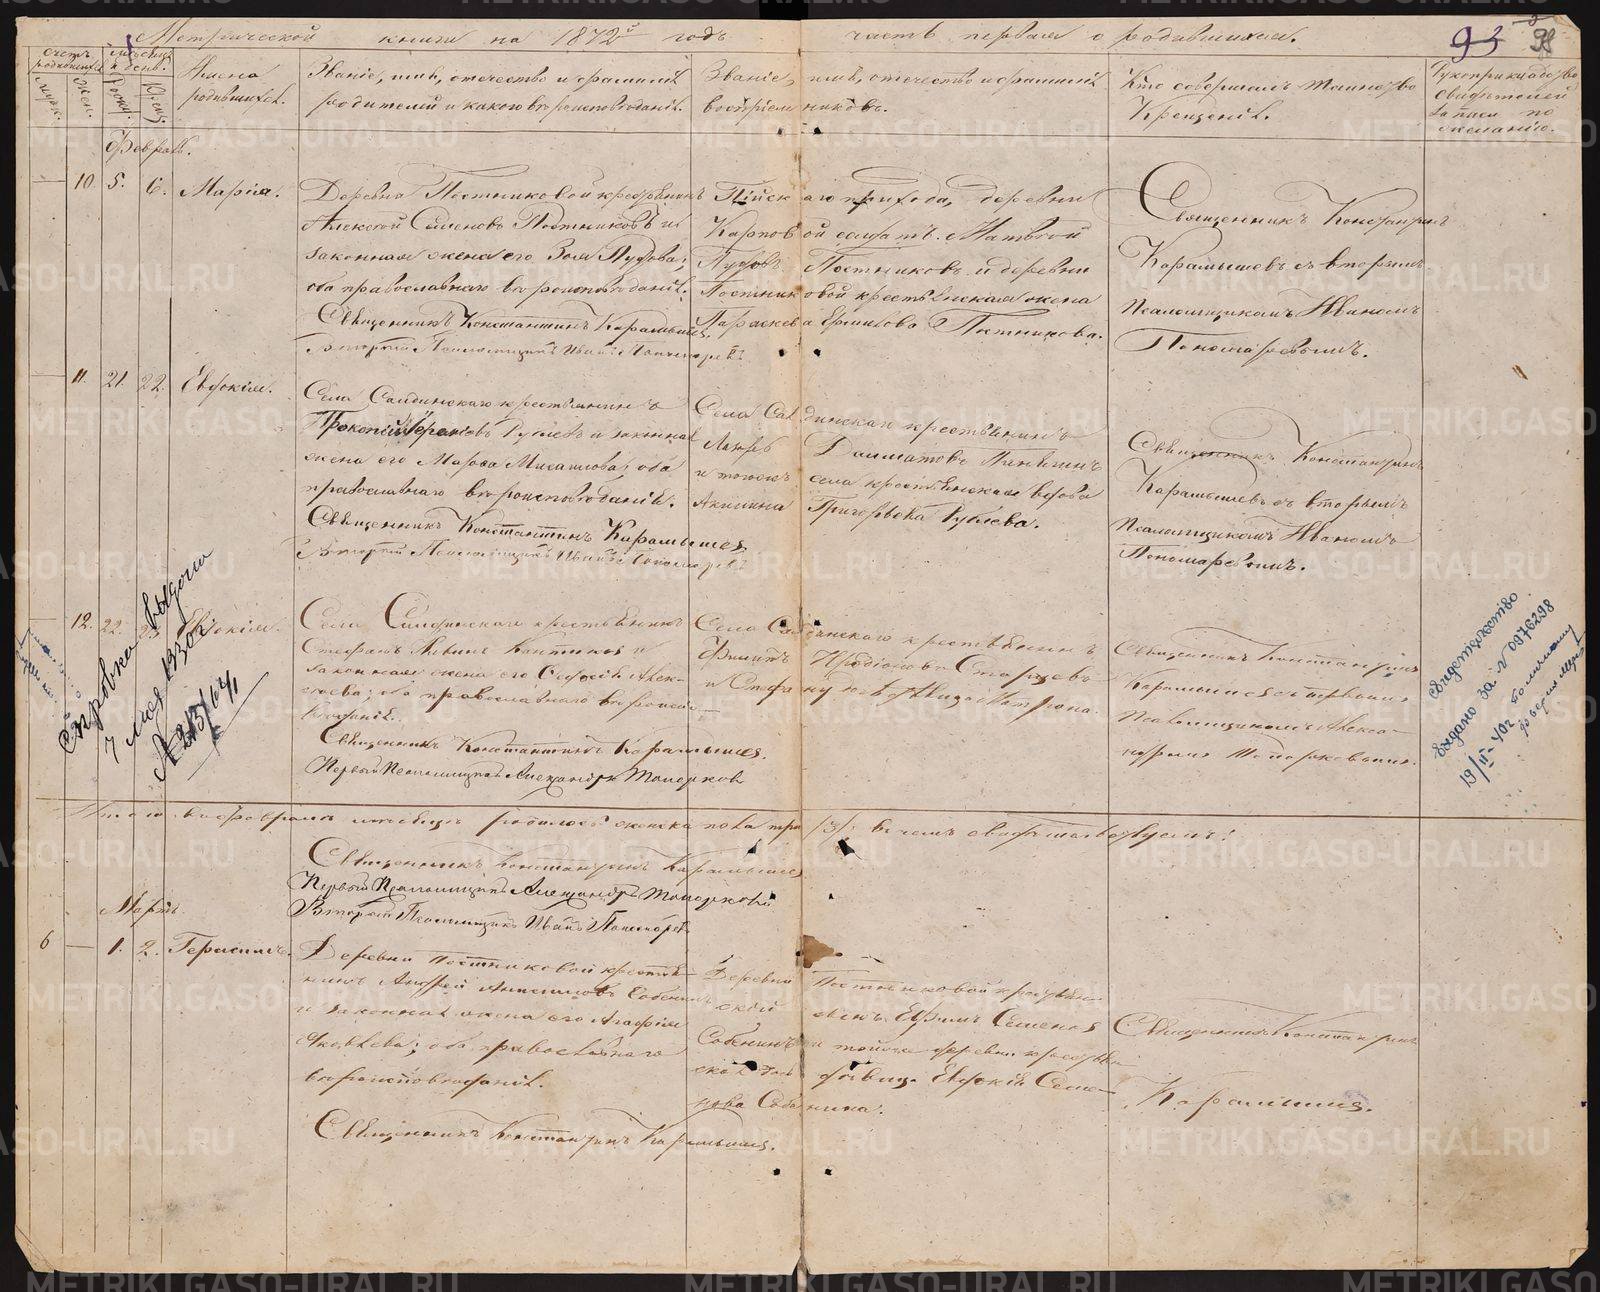 Метрической книги на 1872й годъ часть первая о родившихся.
93 98
Счетъ родившихся
муж. жен.
Мѣсяцъ и день.
рожд. крещ.
Имена родившихся.
Званіе, имя, отечество и фамилія
родителей и какого вѣроисповѣданія.
Званіе, имя, отечество и фамилія
воспріемниковъ.
Кто совершалъ таинство
Крещенія.
Рукоприкладство
свидѣтелей
записи по
желанію.
Февраль.
10. 5. 6. Марія.
Деревни Постниковой крестьянинъ
Алексѣй Семеновъ Постниковъ и
законная жена его Зоя Пудова;
оба православнаго вѣроисповѣданія.
Священникъ Константинъ Карамышев.
Вторый Псаломщикъ Иванъ Пономаревъ
прихода, деревни
Карповой солдатъ Матвѣй
Пудовъ Постниковъ и деревни
Постниковой крестьянская жена
Параскева Ермилова Постникова.
Священникъ Константинъ
Карамышевъ съ вторымъ
псаломщикомъ Иваномъ
Пономаревымъ.
11. 21. 22. Евдокія.
Села Салдинскаго крестьянинъ
Прокопій Рублевъ и законная
жена его Марѳа Михаилова; оба
православнаго вѣроисповѣданія.
Священникъ Константинъ Карамышев
Вторый Псаломщикъ Иванъ Пономаревъ
Села Салдинскаго крестьянинъ
Далматовъ
и тогоже села крестьянская вдова
Акилина Григорьева Рублева.
Священникъ Константинъ
Карамышевъ съ вторымъ
псаломщикомъ Иваномъ
Пономаревымъ.
12. 22. 23. Евдокія.
Села Салдинскаго крестьянинъ
Стефанъ и
законная жена его Софія Алек-
сѣева; оба православнаго вѣроиспо-
вѣданія.
Священникъ Константинъ Карамышев.
Первый Псаломщикъ Александръ Топорковъ
Села Салдинскаго крестьянинъ
Филипъ Иродіоновъ Старцевъ
Священникъ Константинъ
Карамышевъ съ первымъ
Псаломщикомъ Алекса-
ндромъ Топорковымъ.
Справка выдана
7 мая 1930г
№ 213/641
Свидетельство
выдано за № 0976298
19/II-40г
Итого въ февралѣ мѣсяцѣ родилось женска пола три /3/. въ чемъ свидѣтельствуемъ:
Священникъ Константинъ Карамышев
Первый Псаломщикъ Александръ Топорковъ
Вторый Псаломщикъ Иванъ Пономаревъ
Мартъ.
6 1. 2. Герасимъ.
Деревни Постниковой крестья-
нинъ Андрей Собенинъ
и законная жена его Агафія
Яковлева; оба православнаго
вѣроисповѣданія.
Священникъ Константинъ Карамышев.
Деревни Постниковой крестьян-
скій сынъ Ефимъ Семеновъ
Собенинъ и тойже деревни крестьян-
ская дѣвица Евдокія Семе-
нова Собенина.
Священникъ Константинъ
Карамышев.
METRIKI.GASO-URAL.RU